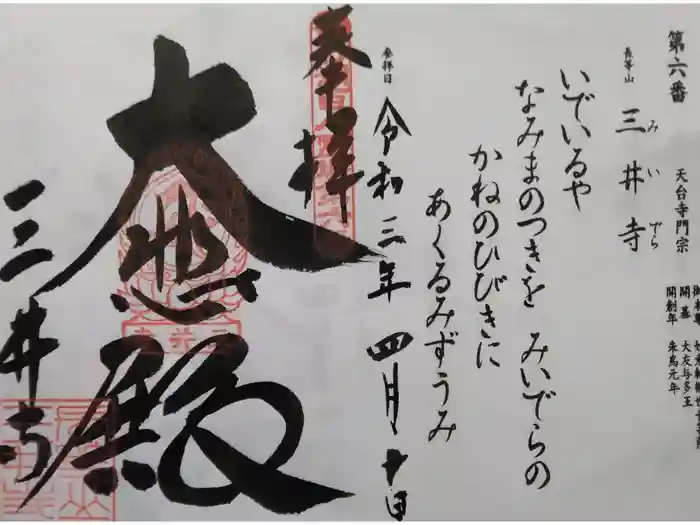 第六番
長等山 三井寺
みいでら
天台寺門宗
開基 大友与多王
開創年 朱鳥元年
いでいるや
なみまのつきを みいでらの
かねのひびきに
あくるみずうみ
参拝日 令和三年四月十日
奉拝
大悲殿
三井寺